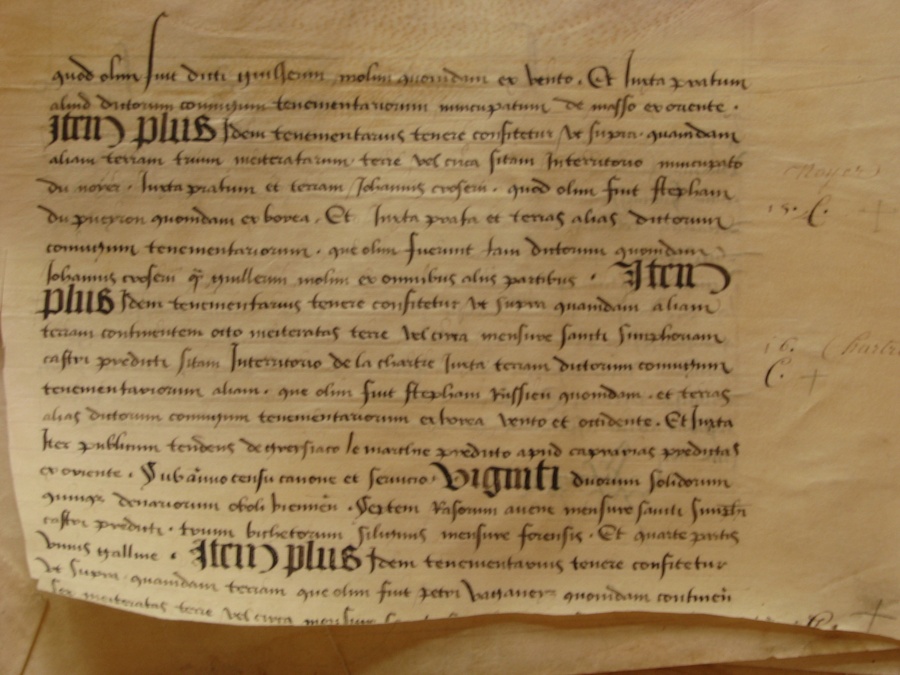 quod olim fuit dicti guillermi molini quondam ex vento. Et Juxta pratum
aliud dictorum conjugum tenementariorum nuncupatum de masso ex oriente.
Item plus Idem tenementarius tenere confitetur Vt supra quamdam
aliam terram trium meiteratarum terre vel circa sitam Interritorio nuncupato
du noyer. Juxta pratum et terram Johannis croseri. quod olim fuit stephani
du pueyron quondam ex borea. Et Juxta prata et terras alias dictorum
conjugum tenementariorum. que olim fuerunt tam dictorum quondam
Johannis croseri guillermi molini ex omnibus aliis partibus. Item
plus Idem tenementarius tenere confitetur Vt supra quamdam aliam
terram continentem octo meiteratas terre vel circa mensure sancti Simphoriani
castri predicti sitam Interritorio de la chartre Juxta terram dictorum conjugum
tenementariorum aliam. que olim fuit stephani quondam. et terras
alias dictorum conjugum tenementariorum ex borea vento et occidente. Et Juxta
Iter publicum tendens de le predicto apud predictas
ex oriente. Sub anno censu canone et servicio. Viginti duorum solidorum
quinque denariorum oboli viennen. Septem Rasorum avene mensure sancti
castri predicti. trium bichetorum siliginis mensure forensis. Et quarte partis
vnius galline. Item plus Idem tenementarius tenere confitetur
Vt supra. quamdam terram que olim fuit petri quondam
Sex meiteratas terre vel circa
Noyer
15. C.
16.
C.